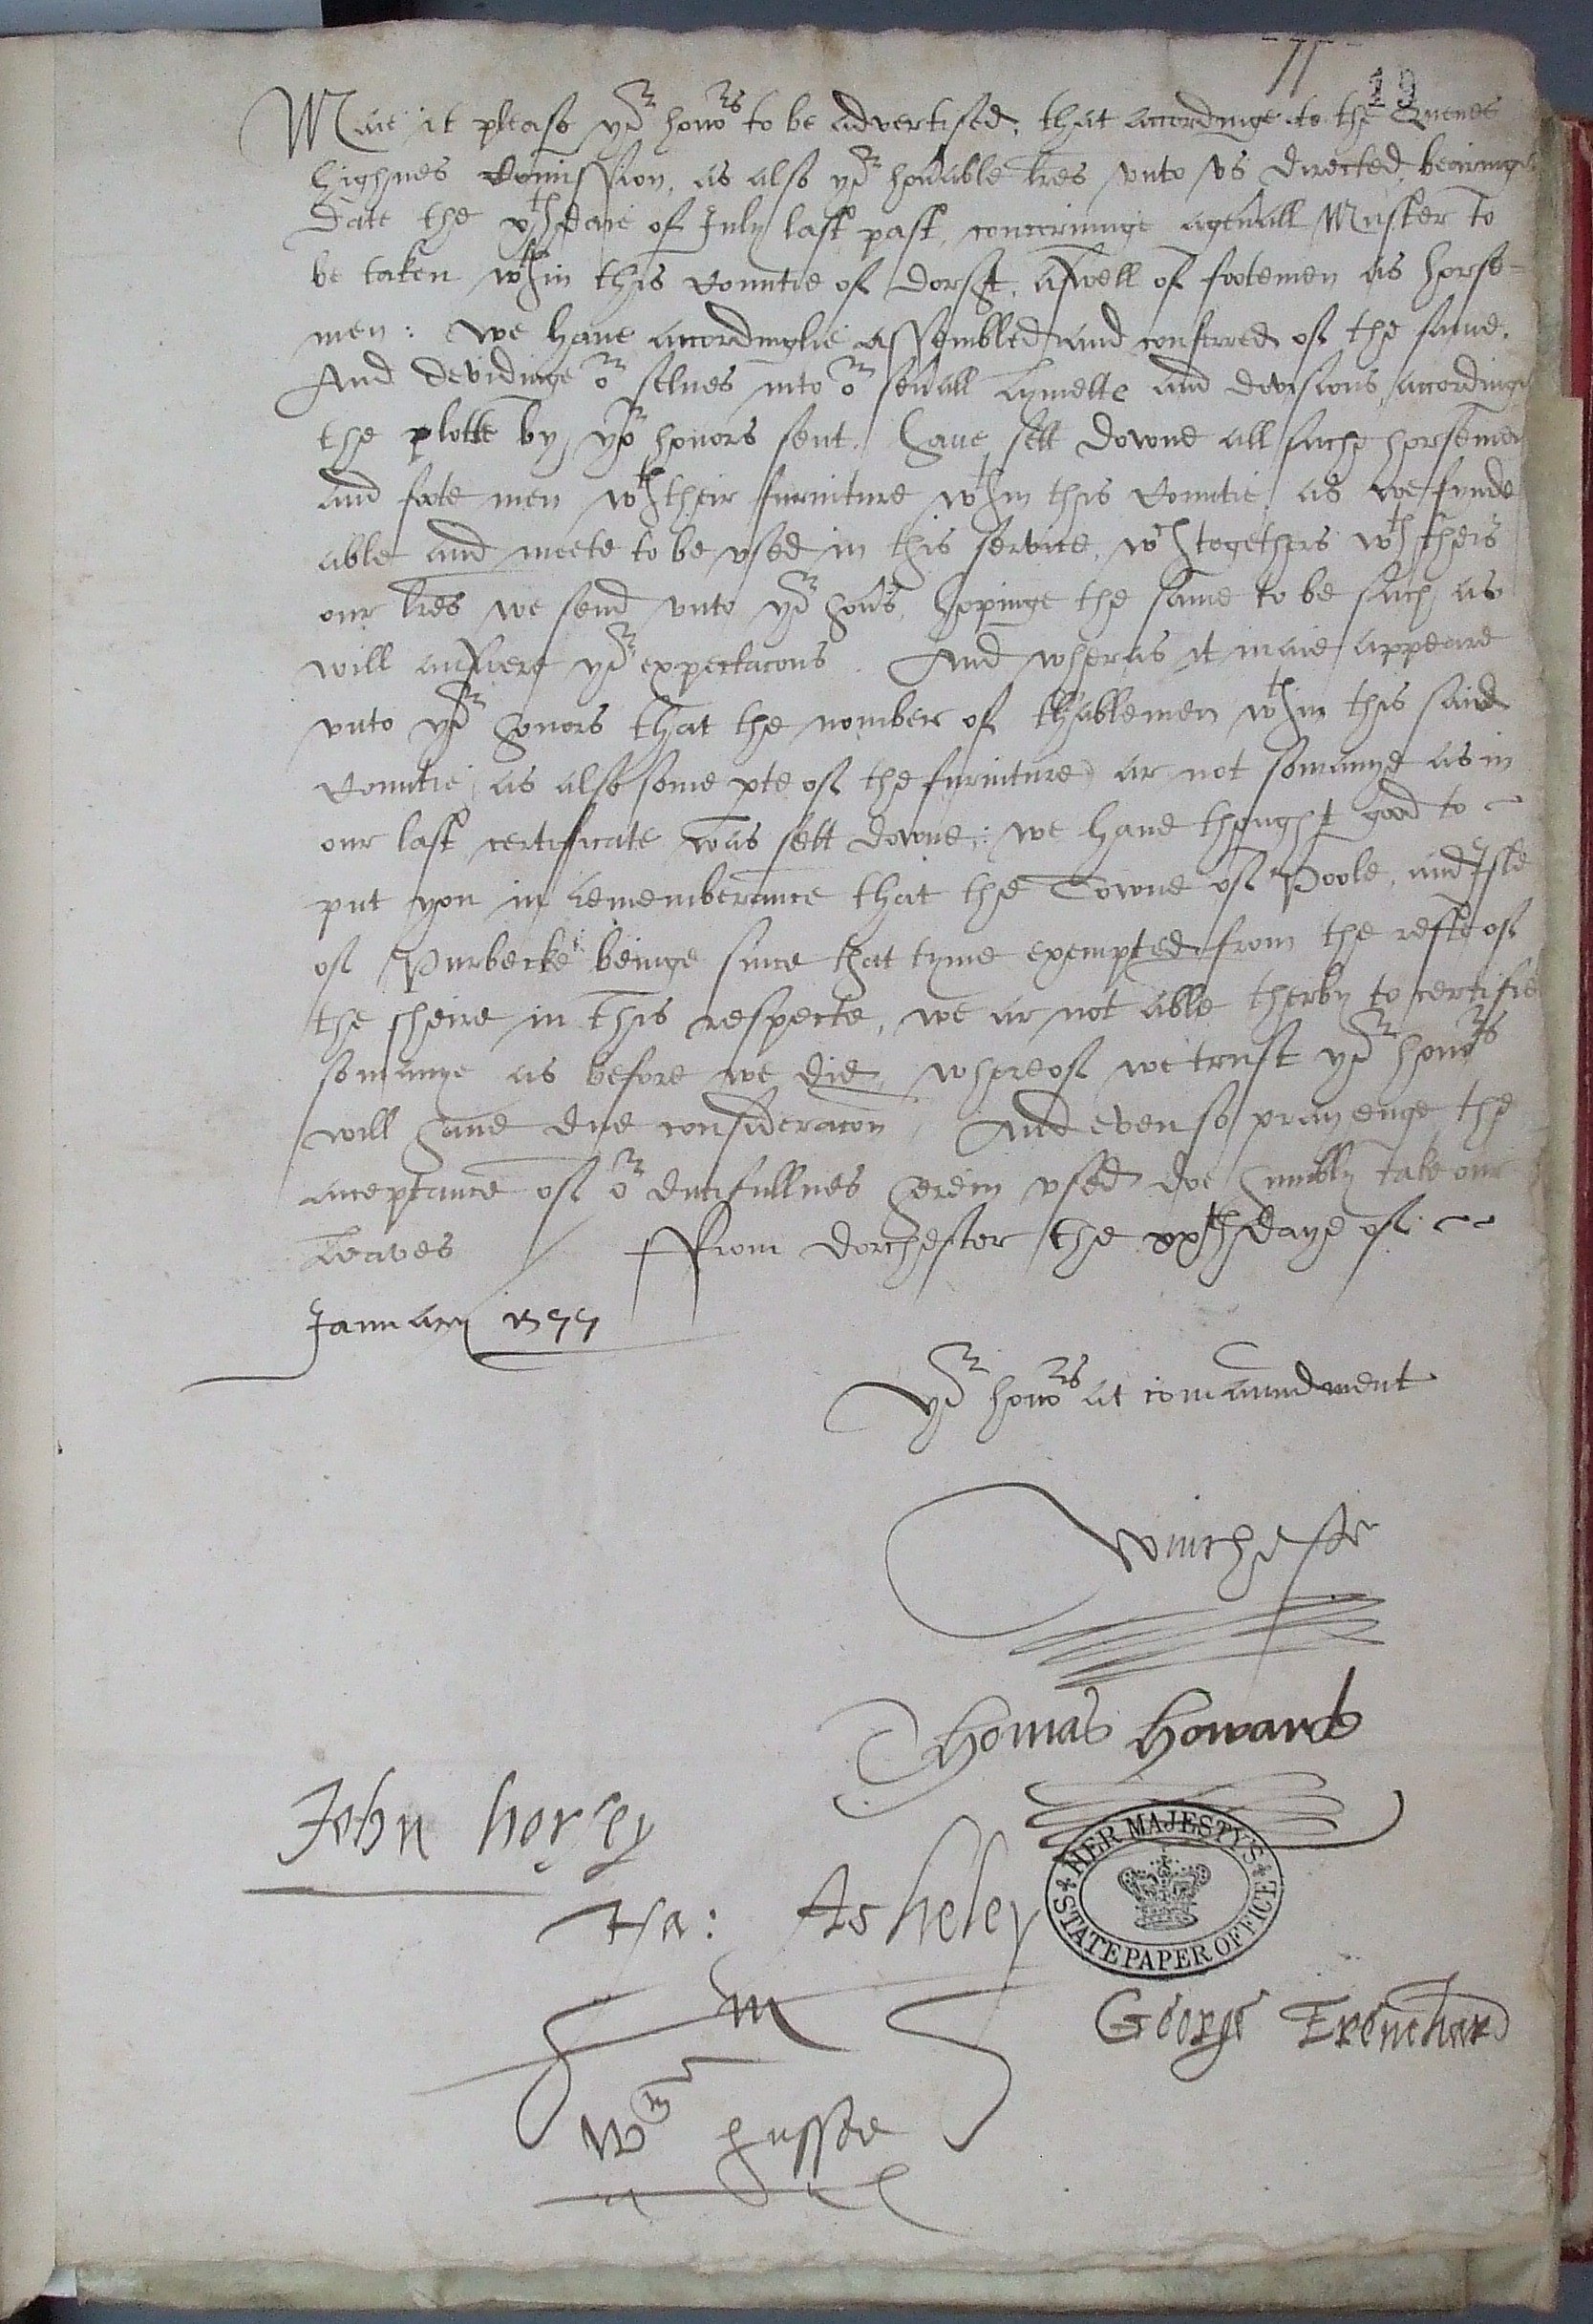 77
19
Maie it please yor honors to be advertised, that accordinge to the Quenes
highnes Comission, as also yor honable lres vnto vs directed, bearinge
date the vth daie of July last past, concerninge a genall Muster to
be taken wthin this Countie of Dorset, aswell of footemen as horse=
men: We haue accordinglie assembled and conferred of the same.
And devidinge or selues into or seuall Lymette and devisions accordinge
the plotte by yor honors sent. haue sett downe all suche horsemen
and foote men wth their furniture wthin this Countie, as we fynde
able and meete to be vsed in this service, wch togethers wth theis
our lres we send vnto yor hons, hopinge the same to be such as
will answere yor expectacons. And wheras it maie appeare
vnto yor honors that the nomber of thablemen wthin this said
Countie (as also some pte of the furniture) ar not somanye as in
our last certificate was sett downe: we haue thought good to
put you in rememberance that the Towne of Poole, and Isle
of Purbecke beinge since that tyme exempted from the reste of
the sheire in this respecte, we ar not able therby to certifie
somanye as before we did, whereof we trust yor honors
will haue due consideracon, And even so prayenge the
acceptance of or dutifullnes herein vsed doe humbly take our
Leaves / From Dorchester the xxth daye of
January 1577
Yor honors at comaundment
Winchester
Thomas Howard
John horsey
Ha: Asheley
HER MAJESTY'S STATE PAPER OFFICE
George Trenchard
Wm husse